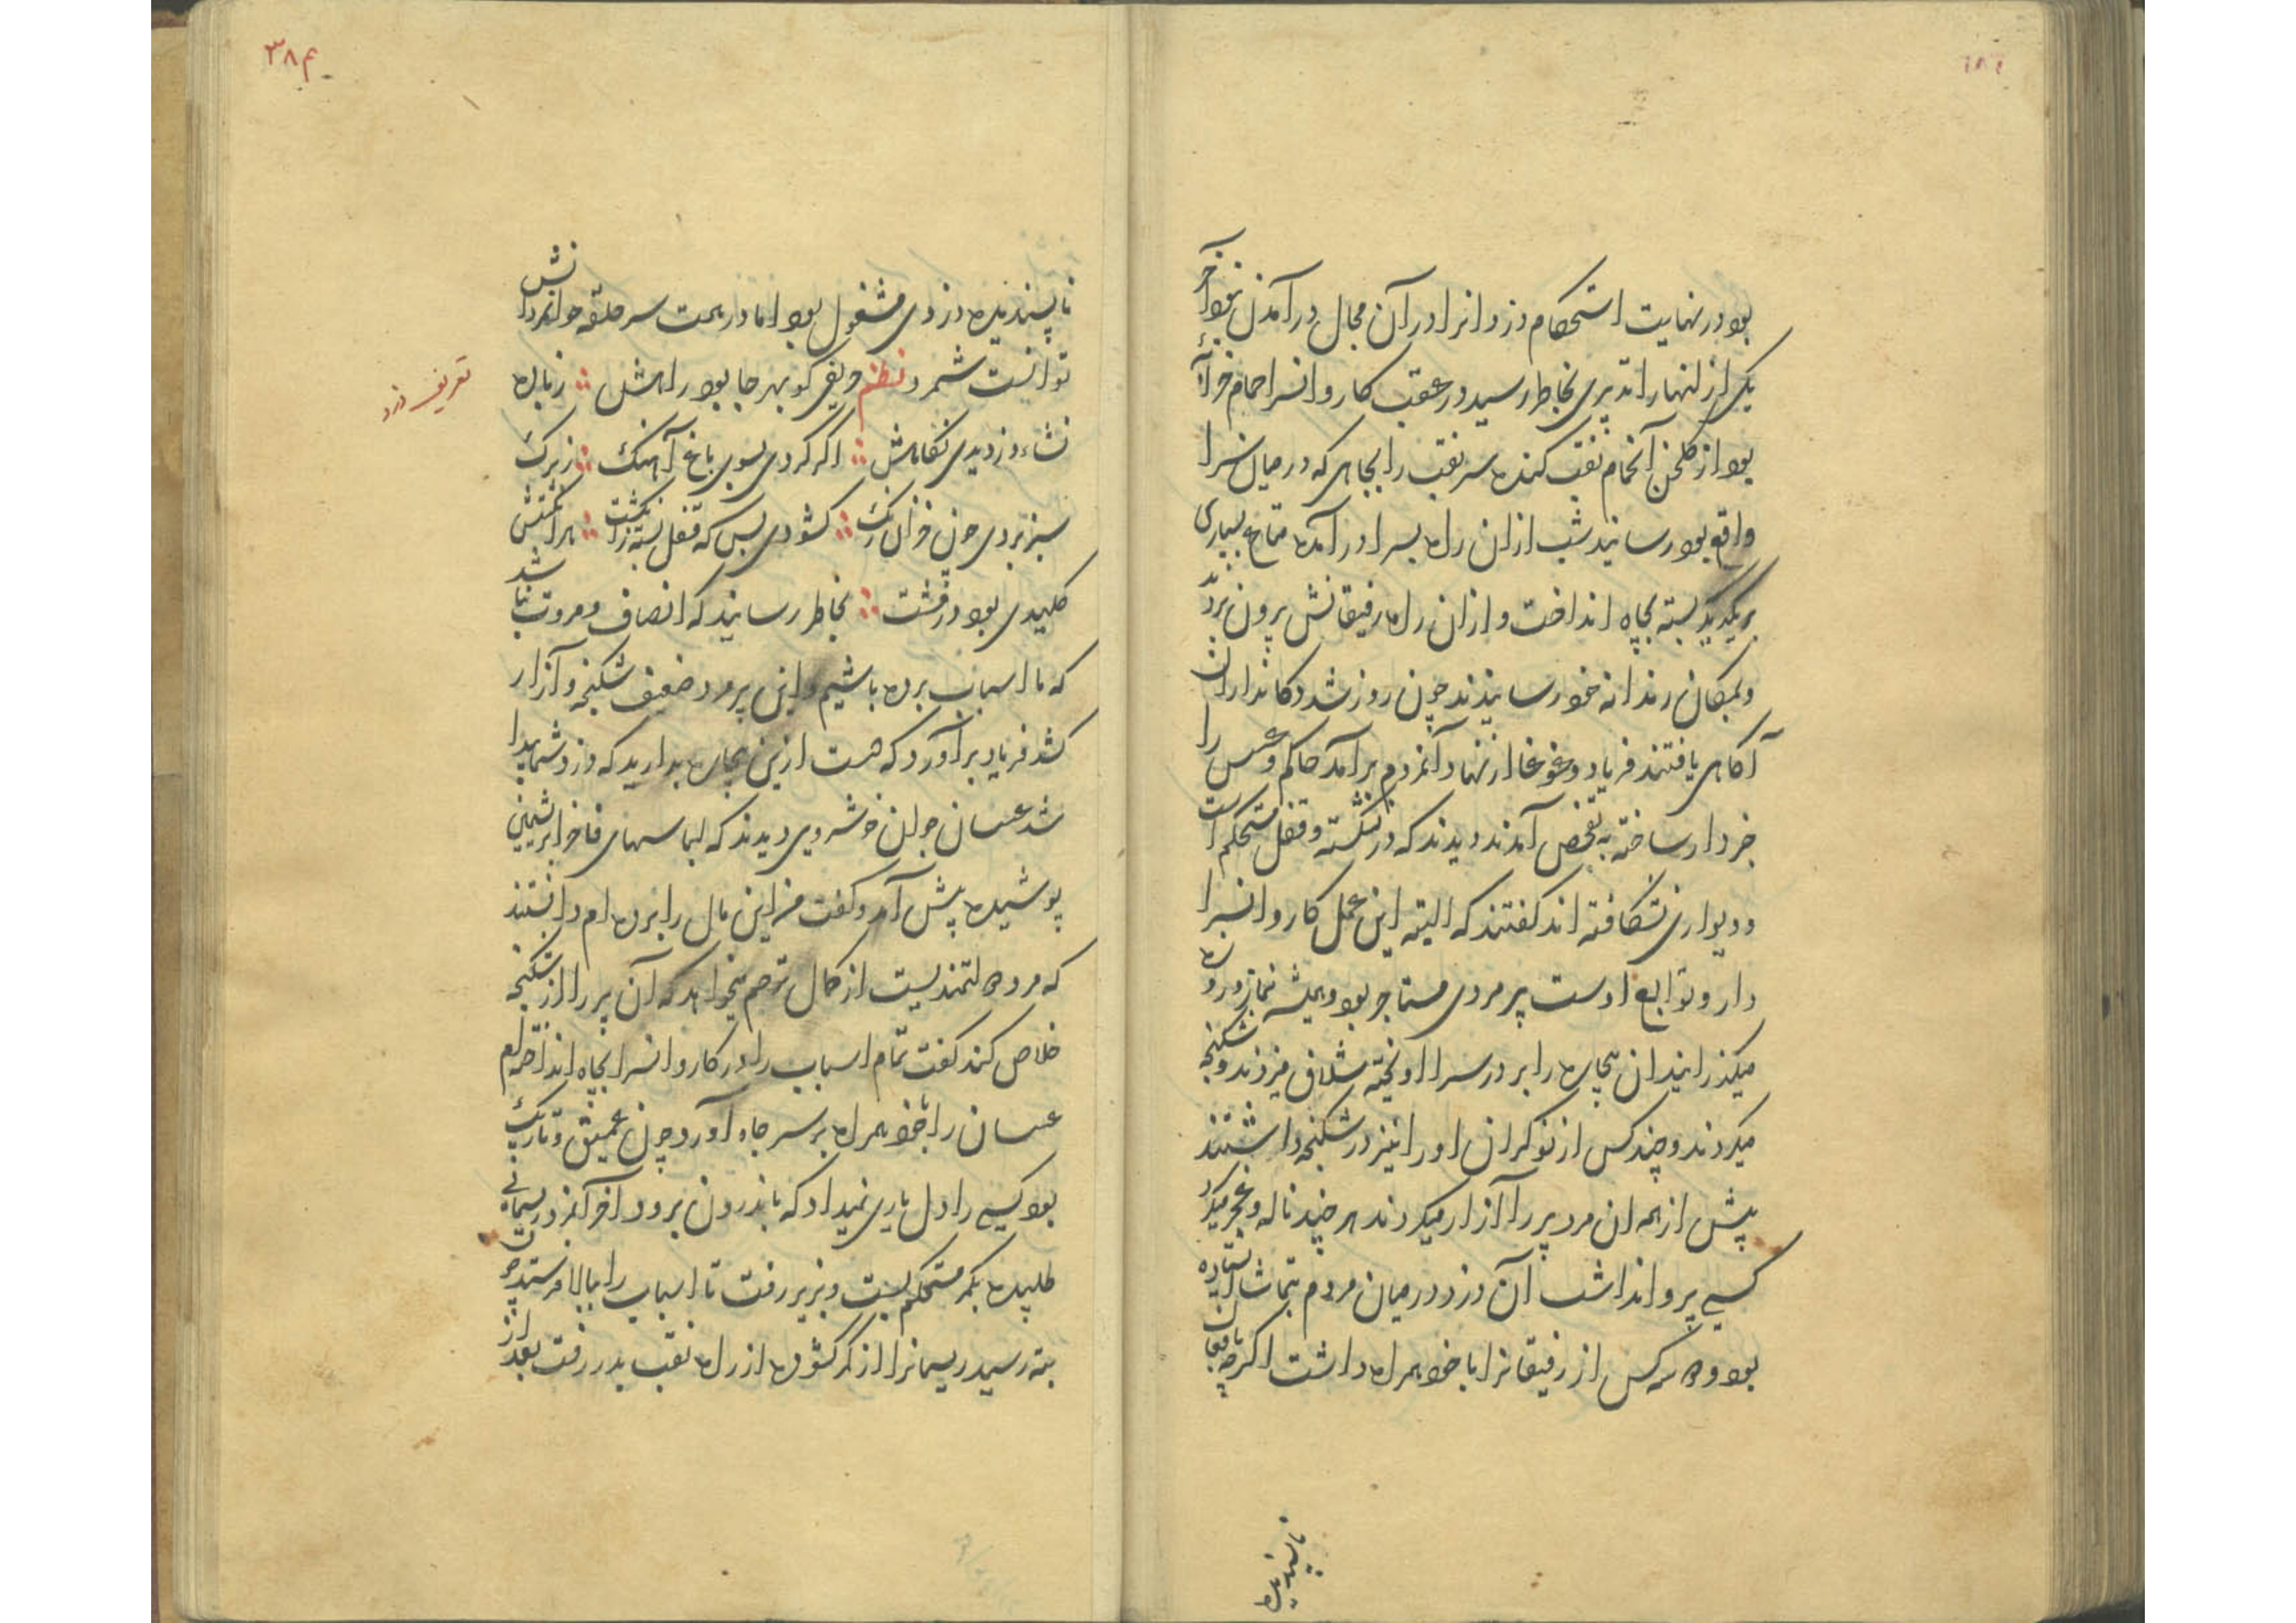 بود در نهایت استحکام دزدانرا در آن مجال درآمدن نبود آخر
یکی از انها را تدبیری بخاطر رسید در عقب کاروانسرا حمام خرابه
بود از کلخن آنحمام نقب کنده سر نقب را بچاهی که در میان سرا
واقع بود رسانید شب ازان راه بسرا درآمده متاع بسیاری
بریکدیگر بسته بچاه انداخت و ازان راه رفیقانش برون بردند
و بمکان رندانه خود رسانیدند چون روز شد دکانداران
آکاهی یافتند فریاد و غوغا از نهاد آنمردم برآمد حاکم و عسس را
خبردار ساخته به تفحص آمدند دیدند که در نشکسته و قفل مستحکم است
و دیواری نشکافته اند کفتند که البته این عمل کاروانسرا
دار و توابع اوست پیر مردی مستاجر بود و همیشه بنماز و روزه
میکذرانید ان بیچاره را بر در سرا اویخته شلاق میزدند و شکنجه
میکردند و چند کس از نوکران او را نیز در شکنجه داشتند
پیش از همه ان مرد پیر را آزار میکردند هر چند ناله و عجز میکرد
کسے پروا نداشت آن دزد در میان مردم بتماشا ایستاده
بود و ده کس از رفیقانرا با خود همراه داشت اکرچه بافعال
ناپسندیده
۳۸۴
ناپسندیده دزدی مشغول بود اما در همت سر حلقه جوانمردانش
توانست شمرد نظم حریفی کو بهر جا بود راهش ؛ زبان
نشاء دزدیدی نکاهش ؛ اکر کردی بسوی باغ آهنک ؛ ز برک
سبز بردی چون خزان رنک ؛ کشودی بس که قفل بسته ز انکشت ؛ هر انکشتش
کلیدی بود در مشت ؛ بخاطر رسانید که انصاف و مروت نباشد
که ما اسباب برده باشیم و این پیر مرد ضعیف شکنجه و آزار
کشد فریاد برآورد که دست ازین بیچاره بدارید که دزد شما پیدا
شد عسسان جوان خوشروی دیدند که لباسهای فاخر ابریشمین
پوشیده پیش آمد و کفت من این مال را برده ام دانستند
که مرد دولتمندیست از کمال ترحم میخواهد که آن پیر را از شکنجه
خلاص کند کفت تمام اسباب را در کاروانسرا بچاه انداخته ام
عسسان را با خود همراه بر سر چاه آورد چون عمیق و تاریک
بود کسے را دل یاری نمیداد که باندرون برود آخر آنمرد ریسمانے
طلبیده بکمر مستحکم بست و بزیر رفت تا اسباب را ببالا فرستد چون
بته رسید ریسمانرا از کمر کشوده از راه نقب بدر رفت بعد از
تعریف دزد